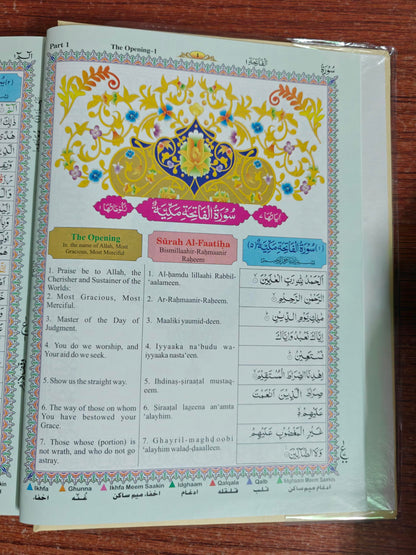 Part 1
The Opening-1
الفاتحة ١
سُوْرَة
اٰيَاتُهَا ٧
سُوْرَةُ الْفَاتِحَةِ مَكِّيَّةٌ
رُكُوْعَاتُهَا ١
The Opening
In. the name of Allah, Most
Gracious, Most Merciful
Sūrah Al-Faatiḥa
Bismillaahir-Raḥmaanir
Raḥeem
(١) سُوْرَةُ الْفَاتِحَةِ مَكِّيَّةٌ (٥)
1. Praise be to Allah, the
Cherisher and Sustainer of the
Worlds:
2. Most Gracious, Most
Merciful.
3. Master of the Day of
Judgment.
4. You do we worship, and
Your aid do we seek.
5. Show us the straight way.
6. The way of those on whom
You have bestowed your
Grace.
7. Those whose (portion) is
not wrath, and who do not go
astray.
1. Al-ḥamdu lillaahi Rabbil-
'aalameen.
2. Ar-Raḥmaanir-Raḥeem.
3. Maaliki yaumid-deen.
4. Iyyaaka na'budu wa-
iyyaaka nasta'een.
5. Ihdinaṣ-ṣiraaṭal mustaq-
eem.
6. Ṣiraaṭal laẓeena an'amta
'alayhim.
7. Ghayril-maghdoobi
'alayhim walad-daaalleen.
اَلْحَمْدُ لِلّٰهِ رَبِّ الْعٰلَمِيْنَ ۙ
الرَّحْمٰنِ الرَّحِيْمِ ۙ
مٰلِكِ يَوْمِ الدِّيْنِ ؕ
اِيَّاكَ نَعْبُدُ وَاِيَّاكَ
نَسْتَعِيْنُ ؕ
اِهْدِنَا الصِّرَاطَ الْمُسْتَقِيْمَ ۙ
صِرَاطَ الَّذِيْنَ اَنْعَمْتَ
عَلَيْهِمْ
غَيْرِ الْمَغْضُوْبِ عَلَيْهِمْ
وَلَا الضَّآلِّيْنَ
Ikhfa
Ghunna
Ikhfa Meem Saakin
Idghaam
Qalqala
Qalb
Idghaam Meem Saakin
اخفا
غُنّه
اخفا میم ساکن
ادغام
قلقله
قلب
ادغام میم ساکن